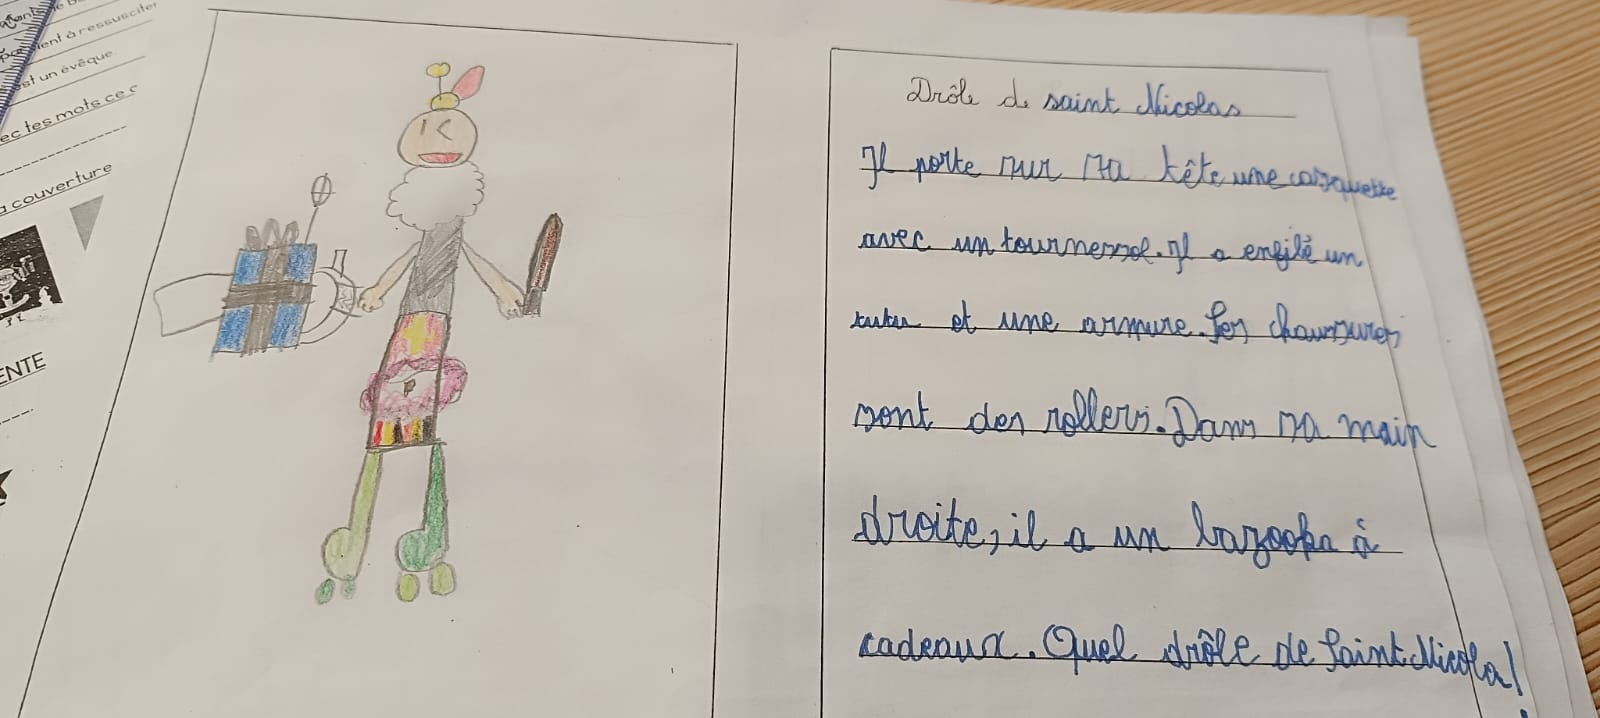 ient à ressusciter
st un évêque
ec tes mots ce c
a couverture
ENTE
Drôle de saint Nicolas
Il porte sur sa tête une casquette
avec un tournesol. Il a enfilé un
tutu et une armure. Ses chaussures
sont des rollers. Dans sa main
droite, il a un bazooka à
cadeaux. Quel drôle de Saint Nicola!